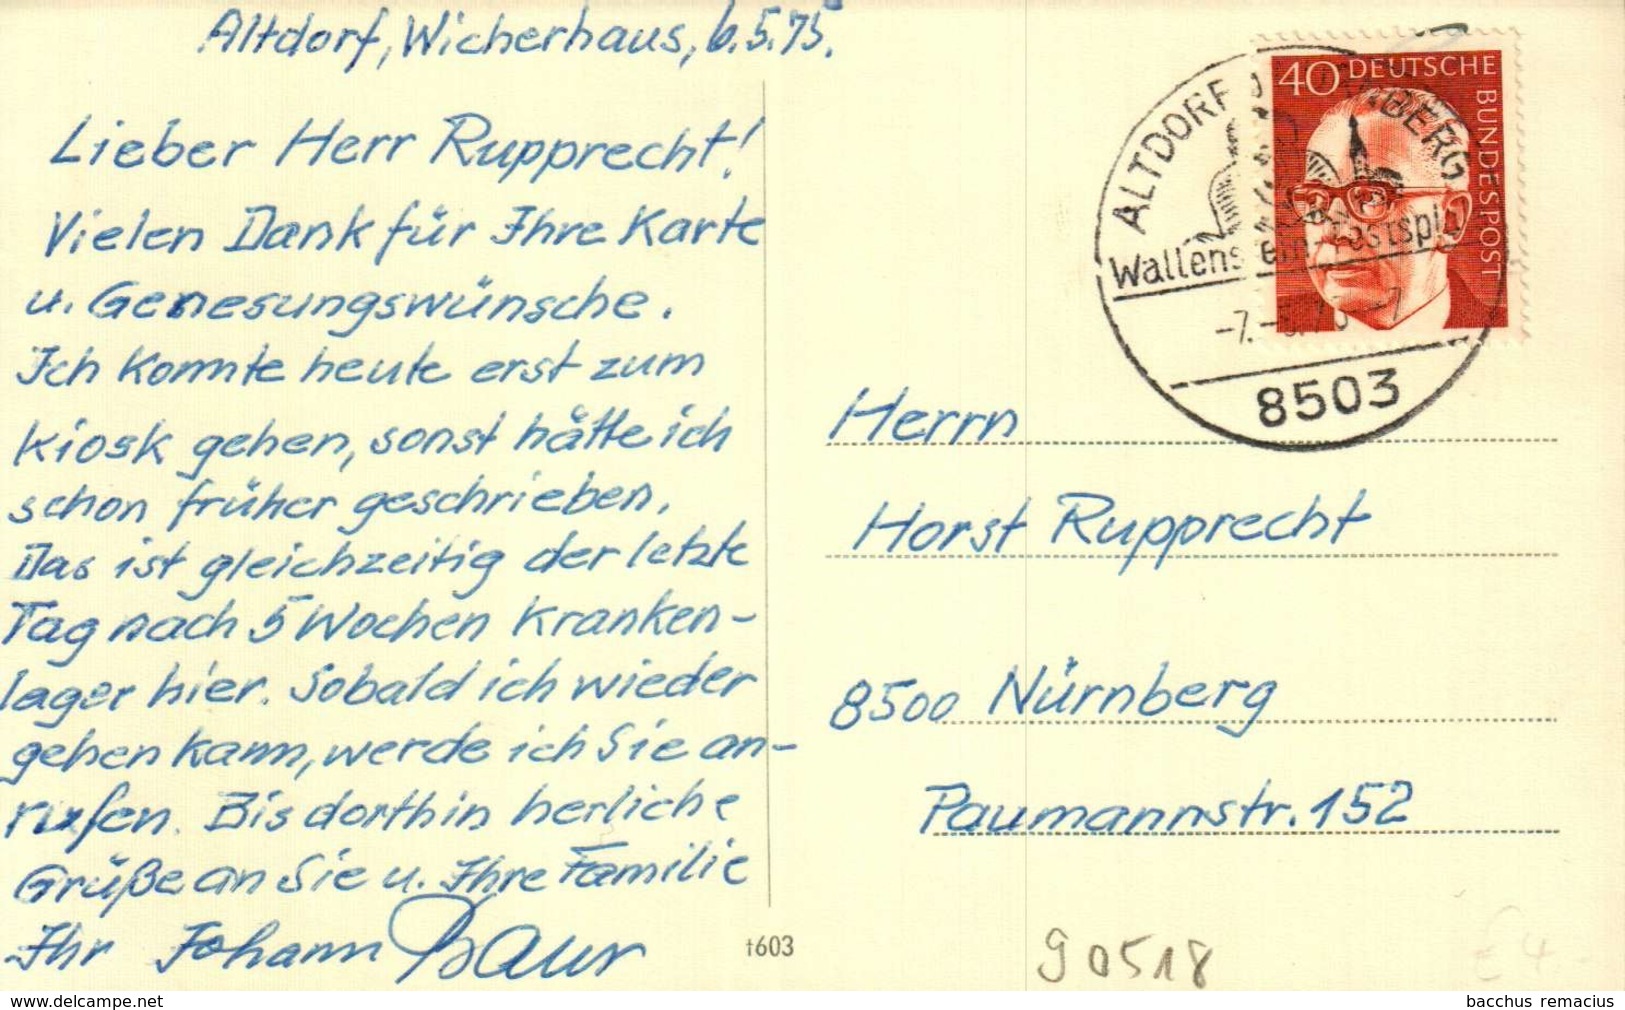 Altdorf, Wicherhaus, 6.5.75.
Lieber Herr Rupprecht!
Vielen Dank für Ihre Karte
u. Genesungswünsche.
Ich konnte heute erst zum
Kiosk gehen, sonst hätte ich
schon früher geschrieben.
Das ist gleichzeitig der letzte
Tag nach 5 Wochen Kranken-
lager hier. Sobald ich wieder
gehen kann, werde ich Sie an-
rufen. Bis dorthin herliche
Grüße an Sie u. Ihre Familie
Ihr Johann Baur
40 DEUTSCHE
BUNDESPOST
ALTDORF
NBERG
Wallenstein-Festspiele
8503
Herrn
Horst Rupprecht
8500 Nürnberg
Paumannstr. 152
t603
90518
www.delcampe.net
bacchus remacius